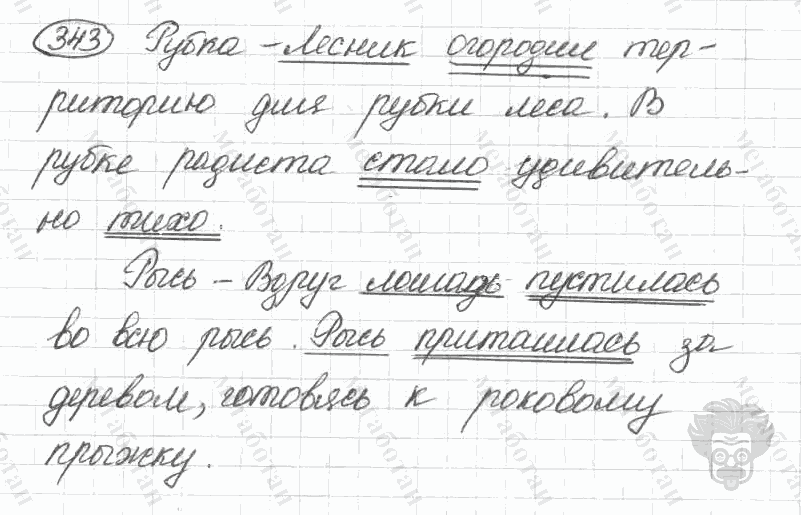 343 Рубка – Лесник огородил тер-
риторию для рубки леса. В
рубке радиста стало удивитель-
но тихо.
Рысь – Вдруг лошадь пустилась
во всю рысь. Рысь притаилась за
деревом, готовясь к роковому
прыжку.